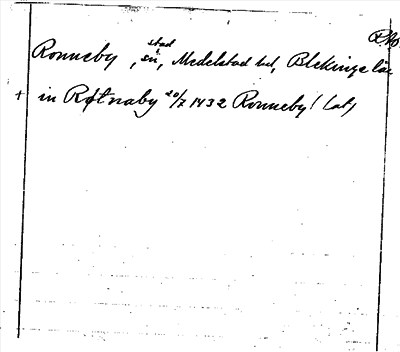 stad
Ronneby, sn, Medelstad hd, Blekinge län
+ in Røtnaby 20/7 1432 Ronneby! (at)